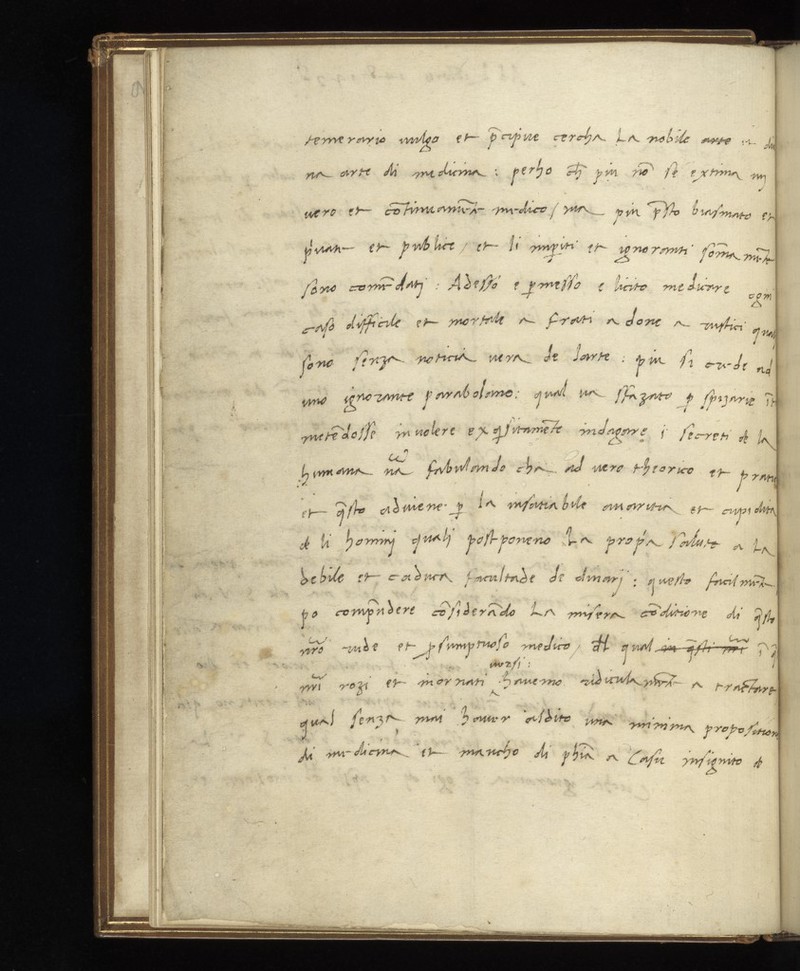 temerario vulgo et p̄cipue cercha La nobile arte et di
na arte di medicina : perho ch̄ piu nō se extima un
vero et cōtinuam̄te medico / ma piu p̄sto biasmato et
p̄uate et publice / et li imperiti et ignoranti sōmam̄te
sono com̄dati : Adesso e p̱messo e licito medicare ogni
caso difficile et mortale a frati a done a rustici quali
sono senza noticia vera de larte : piu si crede ad
uno ignorante parabolano : qual va sfazato p̱ spizarie
metēdosse in volere exq̄sitam̄te indagare i secreti de la
humana nā fabulando cha ad vero theorico et pratic
et q̄sto adviene p̱ la insatiabile avaritia et cupidita
de li homini quali postponeno La prop̄a salute a La
debile et caduca facultade de dinari : questo facilm̄te
po comp̄ndere cōsiderādo La misera cōditione di q̄sto
nr̄o rude et p̄sumptuoso medico / del qual in q̄sti nr̄i ī q̄
nr̄i rozi et inornati versi : havemo ridiculam̄te a tractare
qual senza mai haver aldito una minima proposition
di medicina et mancho di ph̄ia a Casu insignito de